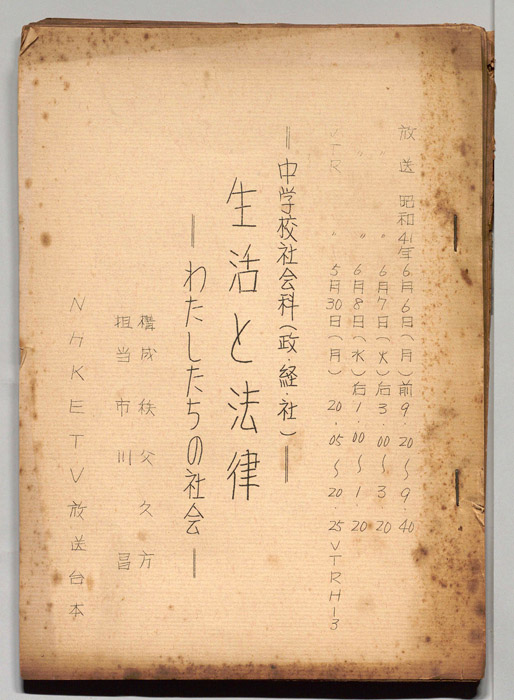 放送 昭和41年6月6日(月)前9.20〜9.40
〃 〃 6月7日(火)后3.00〜3.20
〃 6月8日(水)后1.00〜1.20
VTR 〃 5月30日(月) 20.05〜20.25 VTRH-13
=中学校社会科(政・経・社)=
生活と法律
―わたしたちの社会―
構成 秩父久方
担当 市川 昌
NHKETV放送台本